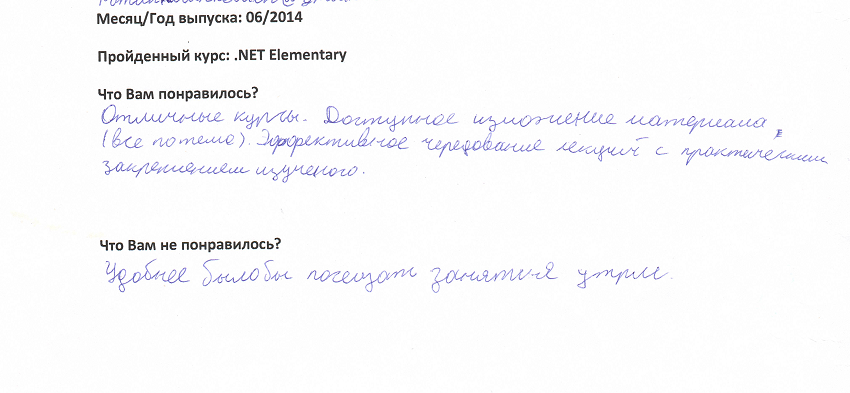 Месяц/Год выпуска: 06/2014
Пройденный курс: .NET Elementary
Что Вам понравилось?
Отличные курсы. Доступное изложение материала,
(все по теме). Эффективное чередование лекций с практическим
закреплением изученого.
Что Вам не понравилось?
Удобнее было бы посещать занятия утром.